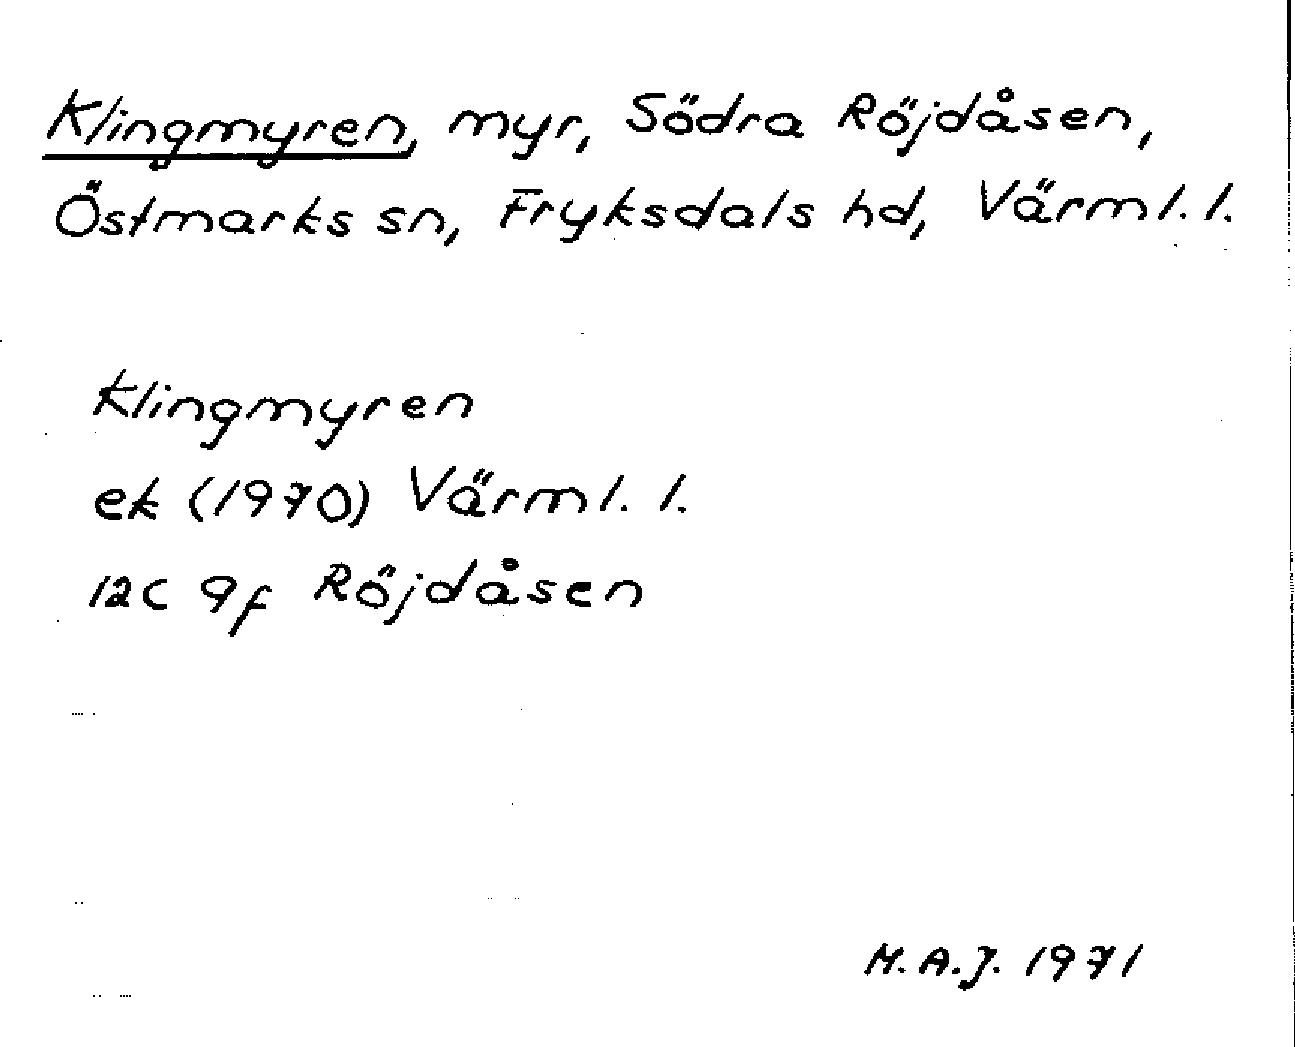 Klingmyren, myr, Södra Röjdåsen,
Östmarks sn, Fryksdals hd, Värml. l.
Klingmyren
ek (1970) Värml. l.
12C 9f Röjdåsen
M.A.J. 1971